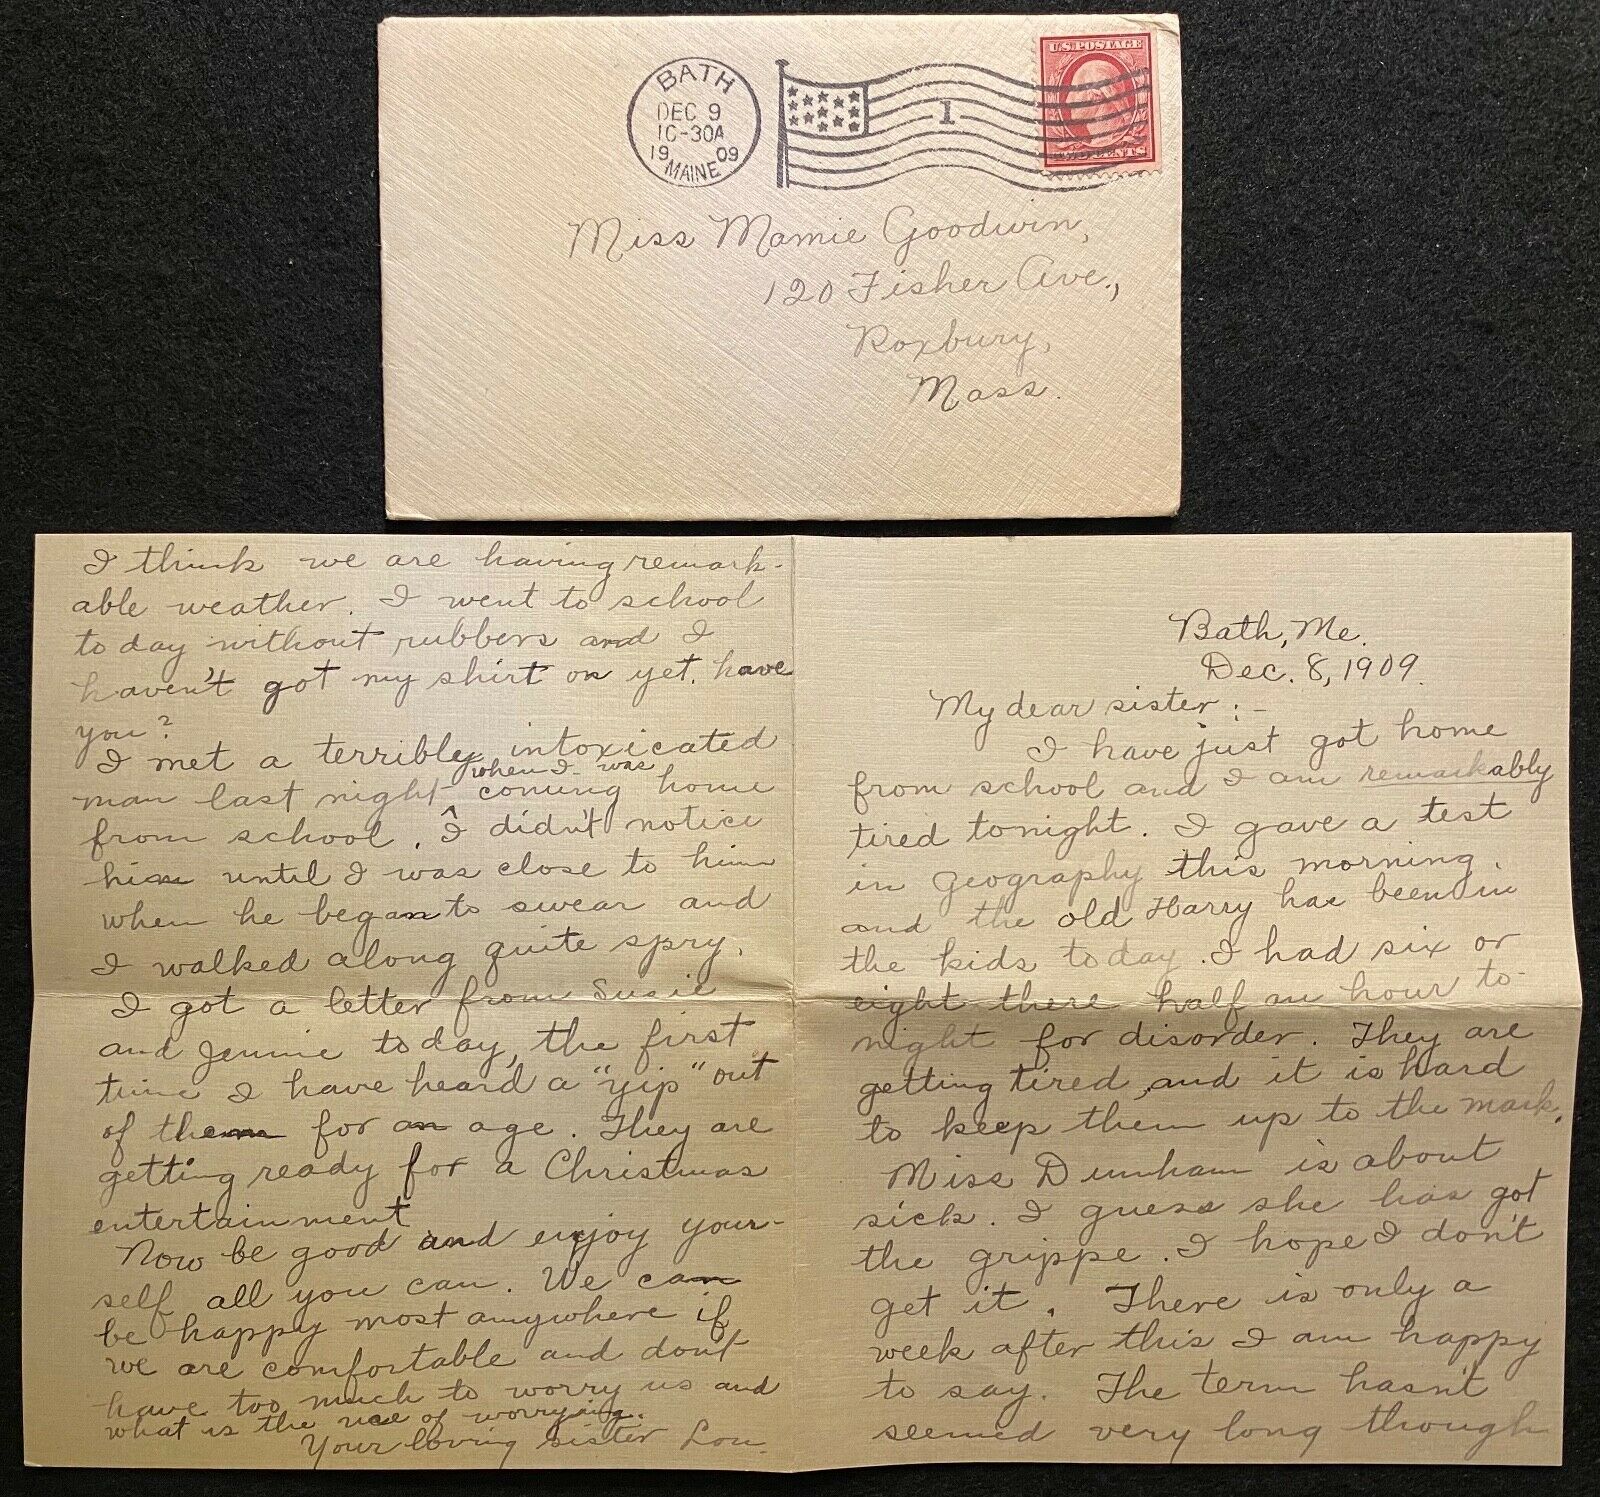 BATH
DEC 9
10-30A
1909
MAINE
1
U.S. POSTAGE
CENTS
Miss Mamie Goodwin,
120 Fisher Ave.,
Roxbury,
Mass.
Bath, Me.
Dec. 8, 1909.
My dear sister:-
I have just got home
from school and I am remarkably
tired tonight. I gave a test
in Geography this morning,
and the old Harry has been in
the kids today. I had six or
eight there half an hour to-
night for disorder. They are
getting tired, and it is hard
to keep them up to the mark.
Miss Dunham is about
sick. I guess she has got
the grippe. I hope I don't
get it. There is only a
week after this I am happy
to say. The term hasn't
seemed very long though
I think we are having remark-
able weather. I went to school
today without rubbers and I
haven't got my shirt on yet, have
you?
I met a terribly intoxicated
man last night when I was coming home
from school. I didn't notice
him until I was close to him
when he began to swear and
I walked along quite spry.
I got a letter from Susie
and Jennie today, the first
time I have heard a "yip" out
of them for an age. They are
getting ready for a Christmas
entertainment
Now be good and enjoy your-
self all you can. We can
be happy most anywhere if
we are comfortable and don't
have too much to worry us and
what is the use of worrying.
Your loving sister Lou.